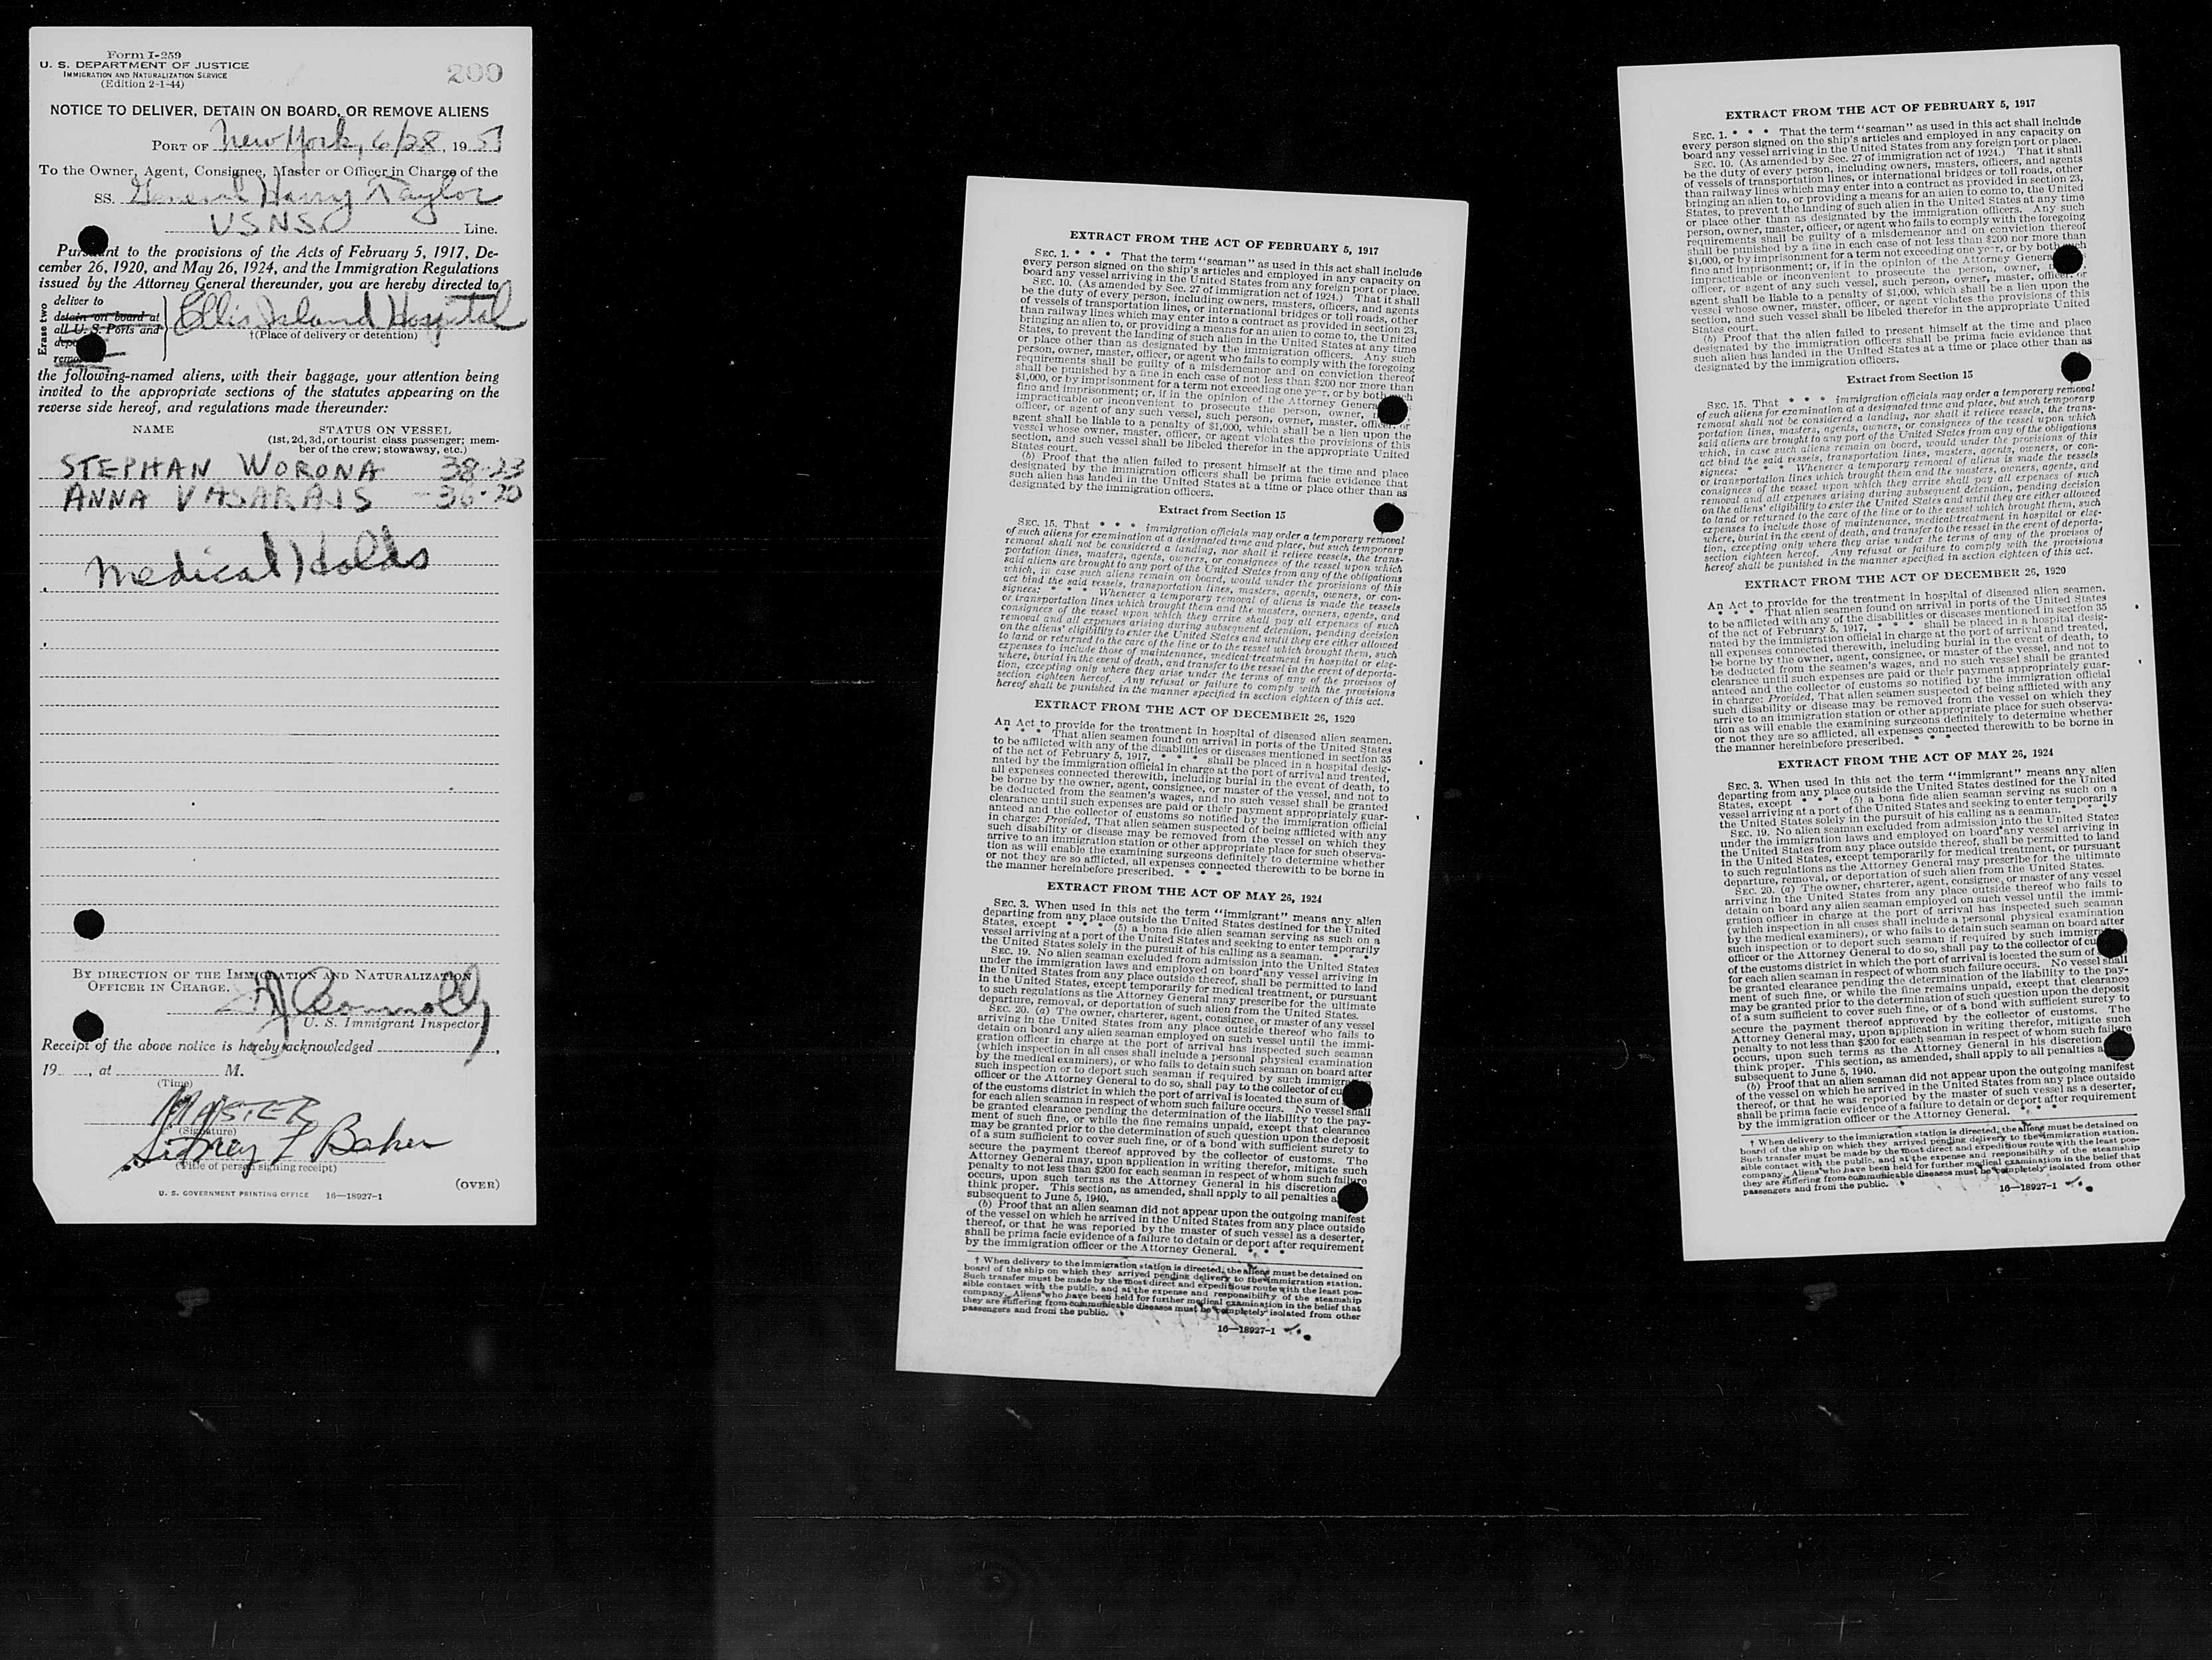 Form I-259
U. S. DEPARTMENT OF JUSTICE
IMMIGRATION AND NATURALIZATION SERVICE
(Edition 2-1-44)
200
NOTICE TO DELIVER, DETAIN ON BOARD, OR REMOVE ALIENS
PORT OF New York, 6/28, 1951
To the Owner, Agent, Consignee, Master or Officer in Charge of the
SS. General Harry Taylor
USNS Line.
Pursuant to the provisions of the Acts of February 5, 1917, De-
cember 26, 1920, and May 26, 1924, and the Immigration Regulations
issued by the Attorney General thereunder, you are hereby directed to
Erase two
deliver to
detain on board at
all U. S. Ports and
Ellis Island Hospital
†(Place of delivery or detention)
the following-named aliens, with their baggage, your attention being
invited to the appropriate sections of the statutes appearing on the
reverse side hereof, and regulations made thereunder:
NAME STATUS ON VESSEL
(1st, 2d, 3d, or tourist class passenger; mem-
ber of the crew; stowaway, etc.)
STEPHAN WORONA 38-23
ANNA VASARAIS - 36-20
Medical Holds
BY DIRECTION OF THE IMMIGRATION AND NATURALIZATION
OFFICER IN CHARGE.
Connolly
U. S. Immigrant Inspector
Receipt of the above notice is hereby acknowledged
19 , at M.
(Time)
MASTER
(Signature)
Sidney F Baker
(Title of person signing receipt)
(OVER)
U. S. GOVERNMENT PRINTING OFFICE 16—18927-1
EXTRACT FROM THE ACT OF FEBRUARY 5, 1917
SEC. 1. * * * That the term "seaman" as used in this act shall include
every person signed on the ship's articles and employed in any capacity on
board any vessel arriving in the United States from any foreign port or place.
SEC. 10. (As amended by Sec. 27 of immigration act of 1924.) That it shall
be the duty of every person, including owners, masters, officers, and agents
of vessels of transportation lines, or international bridges or toll roads, other
than railway lines which may enter into a contract as provided in section 23,
bringing an alien to, or providing a means for an alien to come to, the United
States, to prevent the landing of such alien in the United States at any time
or place other than as designated by the immigration officers. Any such
person, owner, master, officer, or agent who fails to comply with the foregoing
requirements shall be guilty of a misdemeanor and on conviction thereof
shall be punished by a fine in each case of not less than $200 nor more than
$1,000, or by imprisonment for a term not exceeding one year, or by both such
fine and imprisonment; or, if in the opinion of the Attorney General
impracticable or inconvenient to prosecute the person, owner, master, officer, or
officer, or agent of any such vessel, such person, owner, master, officer, or
agent shall be liable to a penalty of $1,000, which shall be a lien upon the
vessel whose owner, master, officer, or agent violates the provisions of this
section, and such vessel shall be libeled therefor in the appropriate United
States court.
(b) Proof that the alien failed to present himself at the time and place
designated by the immigration officers shall be prima facie evidence that
such alien has landed in the United States at a time or place other than as
designated by the immigration officers.
Extract from Section 15
SEC. 15. That * * * immigration officials may order a temporary removal
of such aliens for examination at a designated time and place, but such temporary
removal shall not be considered a landing, nor shall it relieve vessels, the trans-
portation lines, masters, agents, owners, or consignees of the vessel upon which
said aliens are brought to any port of the United States from any of the obligations
which, in case such aliens remain on board, would under the provisions of this
act bind the said vessels, transportation lines, masters, agents, owners, or con-
signees: * * * Whenever a temporary removal of aliens is made the vessels
or transportation lines which brought them and the masters, owners, agents, and
consignees of the vessel upon which they arrive shall pay all expenses of such
removal and all expenses arising during subsequent detention, pending decision
on the aliens' eligibility to enter the United States and until they are either allowed
to land or returned to the care of the line or to the vessel which brought them, such
expenses to include those of maintenance, medical treatment in hospital or else-
where, burial in the event of death, and transfer to the vessel in the event of deporta-
tion, excepting only where they arise under the terms of any of the provisos of
section eighteen hereof. Any refusal or failure to comply with the provisions
hereof shall be punished in the manner specified in section eighteen of this act.
EXTRACT FROM THE ACT OF DECEMBER 26, 1920
An Act to provide for the treatment in hospital of diseased alien seamen.
* * * That alien seamen found on arrival in ports of the United States
to be afflicted with any of the disabilities or diseases mentioned in section 35
of the act of February 5, 1917, * * * shall be placed in a hospital desig-
nated by the immigration official in charge at the port of arrival and treated,
all expenses connected therewith, including burial in the event of death, to
be borne by the owner, agent, consignee, or master of the vessel, and not to
be deducted from the seamen's wages, and no such vessel shall be granted
clearance until such expenses are paid or their payment appropriately guar-
anteed and the collector of customs so notified by the immigration official
in charge: Provided, That alien seamen suspected of being afflicted with any
such disability or disease may be removed from the vessel on which they
arrive to an immigration station or other appropriate place for such observa-
tion as will enable the examining surgeons definitely to determine whether
or not they are so afflicted, all expenses connected therewith to be borne in
the manner hereinbefore prescribed. * * *
EXTRACT FROM THE ACT OF MAY 26, 1924
SEC. 3. When used in this act the term "immigrant" means any alien
departing from any place outside the United States destined for the United
States, except * * * (5) a bona fide alien seaman serving as such on a
vessel arriving at a port of the United States and seeking to enter temporarily
the United States solely in the pursuit of his calling as a seaman. * * *
SEC. 19. No alien seaman excluded from admission into the United States
under the immigration laws and employed on board any vessel arriving in
the United States from any place outside thereof, shall be permitted to land
in the United States, except temporarily for medical treatment, or pursuant
to such regulations as the Attorney General may prescribe for the ultimate
departure, removal, or deportation of such alien from the United States.
SEC. 20. (a) The owner, charterer, agent, consignee, or master of any vessel
arriving in the United States from any place outside thereof who fails to
detain on board any alien seaman employed on such vessel until the immi-
gration officer in charge at the port of arrival has inspected such seaman
(which inspection in all cases shall include a personal physical examination
by the medical examiners), or who fails to detain such seaman on board after
such inspection or to deport such seaman if required by such immigra
officer or the Attorney General to do so, shall pay to the collector of cu
of the customs district in which the port of arrival is located the sum of
for each alien seaman in respect of whom such failure occurs. No vessel shall
be granted clearance pending the determination of the liability to the pay-
ment of such fine, or while the fine remains unpaid, except that clearance
may be granted prior to the determination of such question upon the deposit
of a sum sufficient to cover such fine, or of a bond with sufficient surety to
secure the payment thereof approved by the collector of customs. The
Attorney General may, upon application in writing therefor, mitigate such
penalty to not less than $200 for each seaman in respect of whom such failure
occurs, upon such terms as the Attorney General in his discretion
think proper. This section, as amended, shall apply to all penalties a
subsequent to June 5, 1940.
(b) Proof that an alien seaman did not appear upon the outgoing manifest
of the vessel on which he arrived in the United States from any place outside
thereof, or that he was reported by the master of such vessel as a deserter,
shall be prima facie evidence of a failure to detain or deport after requirement
by the immigration officer or the Attorney General. * * *
† When delivery to the immigration station is directed, the aliens must be detained on
board of the ship on which they arrived pending delivery to the immigration station.
Such transfer must be made by the most direct and expeditious route with the least pos-
sible contact with the public, and at the expense and responsibility of the steamship
company. Aliens who have been held for further medical examination in the belief that
they are suffering from communicable diseases must be completely isolated from other
passengers and from the public.
16—18927-1
EXTRACT FROM THE ACT OF FEBRUARY 5, 1917
SEC. 1. * * * That the term "seaman" as used in this act shall include
every person signed on the ship's articles and employed in any capacity on
board any vessel arriving in the United States from any foreign port or place.
SEC. 10. (As amended by Sec. 27 of immigration act of 1924.) That it shall
be the duty of every person, including owners, masters, officers, and agents
of vessels of transportation lines, or international bridges or toll roads, other
than railway lines which may enter into a contract as provided in section 23,
bringing an alien to, or providing a means for an alien to come to, the United
States, to prevent the landing of such alien in the United States at any time
or place other than as designated by the immigration officers. Any such
person, owner, master, officer, or agent who fails to comply with the foregoing
requirements shall be guilty of a misdemeanor and on conviction thereof
shall be punished by a fine in each case of not less than $200 nor more than
$1,000, or by imprisonment for a term not exceeding one year, or by both such
fine and imprisonment; or, if in the opinion of the Attorney General
impracticable or inconvenient to prosecute the person, owner,
officer, or agent of any such vessel, such person, owner, master, officer, or
agent shall be liable to a penalty of $1,000, which shall be a lien upon the
vessel whose owner, master, officer, or agent violates the provisions of this
section, and such vessel shall be libeled therefor in the appropriate United
States court.
(b) Proof that the alien failed to present himself at the time and place
designated by the immigration officers shall be prima facie evidence that
such alien has landed in the United States at a time or place other than as
designated by the immigration officers.
Extract from Section 15
SEC. 15. That * * * immigration officials may order a temporary removal
of such aliens for examination at a designated time and place, but such temporary
removal shall not be considered a landing, nor shall it relieve vessels, the trans-
portation lines, masters, agents, owners, or consignees of the vessel upon which
said aliens are brought to any port of the United States from any of the obligations
which, in case such aliens remain on board, would under the provisions of this
act bind the said vessels, transportation lines, masters, agents, owners, or con-
signees: * * * Whenever a temporary removal of aliens is made the vessels
or transportation lines which brought them and the masters, owners, agents, and
consignees of the vessel upon which they arrive shall pay all expenses of such
removal and all expenses arising during subsequent detention, pending decision
on the aliens' eligibility to enter the United States and until they are either allowed
to land or returned to the care of the line or to the vessel which brought them, such
expenses to include those of maintenance, medical treatment in hospital or else-
where, burial in the event of death, and transfer to the vessel in the event of deporta-
tion, excepting only where they arise under the terms of any of the provisos of
section eighteen hereof. Any refusal or failure to comply with the provisions
hereof shall be punished in the manner specified in section eighteen of this act.
EXTRACT FROM THE ACT OF DECEMBER 26, 1920
An Act to provide for the treatment in hospital of diseased alien seamen.
* * * That alien seamen found on arrival in ports of the United States
to be afflicted with any of the disabilities or diseases mentioned in section 35
of the act of February 5, 1917, * * * shall be placed in a hospital desig-
nated by the immigration official in charge at the port of arrival and treated,
all expenses connected therewith, including burial in the event of death, to
be borne by the owner, agent, consignee, or master of the vessel, and not to
be deducted from the seamen's wages, and no such vessel shall be granted
clearance until such expenses are paid or their payment appropriately guar-
anteed and the collector of customs so notified by the immigration official
in charge: Provided, That alien seamen suspected of being afflicted with any
such disability or disease may be removed from the vessel on which they
arrive to an immigration station or other appropriate place for such observa-
tion as will enable the examining surgeons definitely to determine whether
or not they are so afflicted, all expenses connected therewith to be borne in
the manner hereinbefore prescribed. * * *
EXTRACT FROM THE ACT OF MAY 26, 1924
SEC. 3. When used in this act the term "immigrant" means any alien
departing from any place outside the United States destined for the United
States, except * * * (5) a bona fide alien seaman serving as such on a
vessel arriving at a port of the United States and seeking to enter temporarily
the United States solely in the pursuit of his calling as a seaman. * * *
SEC. 19. No alien seaman excluded from admission into the United States
under the immigration laws and employed on board any vessel arriving in
the United States from any place outside thereof, shall be permitted to land
in the United States, except temporarily for medical treatment, or pursuant
to such regulations as the Attorney General may prescribe for the ultimate
departure, removal, or deportation of such alien from the United States.
SEC. 20. (a) The owner, charterer, agent, consignee, or master of any vessel
arriving in the United States from any place outside thereof who fails to
detain on board any alien seaman employed on such vessel until the immi-
gration officer in charge at the port of arrival has inspected such seaman
(which inspection in all cases shall include a personal physical examination
by the medical examiners), or who fails to detain such seaman on board after
such inspection or to deport such seaman if required by such immigra
officer or the Attorney General to do so, shall pay to the collector of cu
of the customs district in which the port of arrival is located the sum of
for each alien seaman in respect of whom such failure occurs. No vessel shall
be granted clearance pending the determination of the liability to the pay-
ment of such fine, or while the fine remains unpaid, except that clearance
may be granted prior to the determination of such question upon the deposit
of a sum sufficient to cover such fine, or of a bond with sufficient surety to
secure the payment thereof approved by the collector of customs. The
Attorney General may, upon application in writing therefor, mitigate such
penalty to not less than $200 for each seaman in respect of whom such failure
occurs, upon such terms as the Attorney General in his discretion
think proper. This section, as amended, shall apply to all penalties a
subsequent to June 5, 1940.
(b) Proof that an alien seaman did not appear upon the outgoing manifest
of the vessel on which he arrived in the United States from any place outside
thereof, or that he was reported by the master of such vessel as a deserter,
shall be prima facie evidence of a failure to detain or deport after requirement
by the immigration officer or the Attorney General. * * *
† When delivery to the immigration station is directed, the aliens must be detained on
board of the ship on which they arrived pending delivery to the immigration station.
Such transfer must be made by the most direct and expeditious route with the least pos-
sible contact with the public, and at the expense and responsibility of the steamship
company. Aliens who have been held for further medical examination in the belief that
they are suffering from communicable diseases must be completely isolated from other
passengers and from the public.
16—18927-1